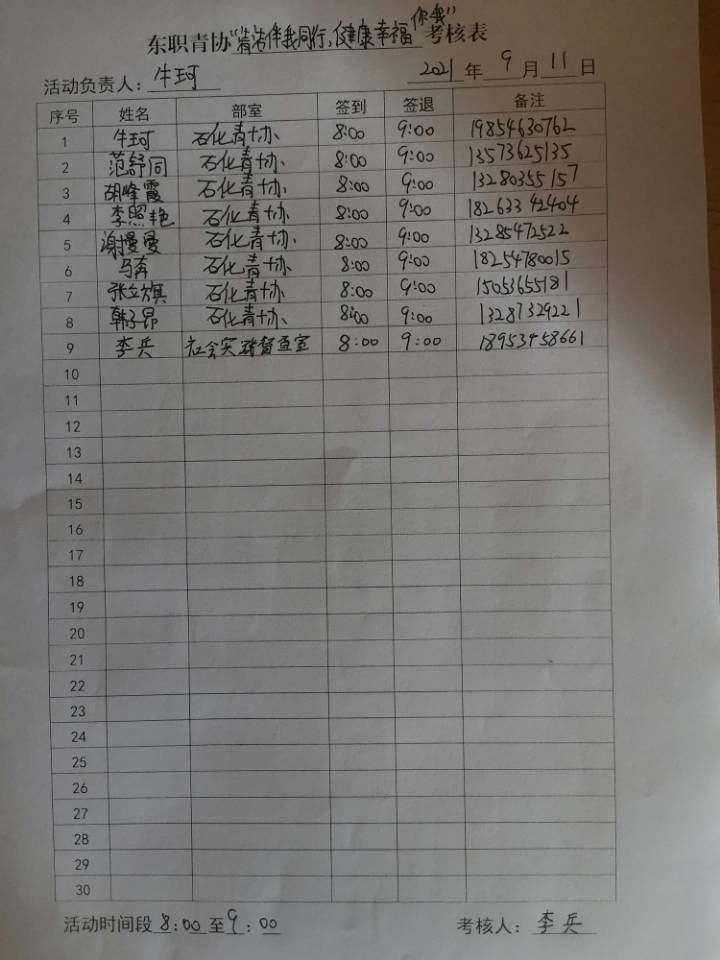 东职青协“清洁伴我同行,健康幸福你我”考核表
活动负责人：牛珂 2021年9月11日
序号 姓名 部室 签到 签退 备注
1 牛珂 石化青协 8:00 9:00 19854630762
2 范舒同 石化青协 8:00 9:00 13573625135
3 胡峰霞 石化青协 8:00 9:00 13280355157
4 李照艳 石化青协 8:00 9:00 18263342404
5 谢漫曼 石化青协 8:00 9:00 13285472522
6 马奔 石化青协 8:00 9:00 18254780015
7 张立祺 石化青协 8:00 9:00 15053655181
8 韩子昂 石化青协 8:00 9:00 13287329221
9 李兵 社会实践督查室 8:00 9:00 18953458661
10
11
12
13
14
15
16
17
18
19
20
21
22
23
24
25
26
27
28
29
30
活动时间段 8:00至9:00 考核人：李兵